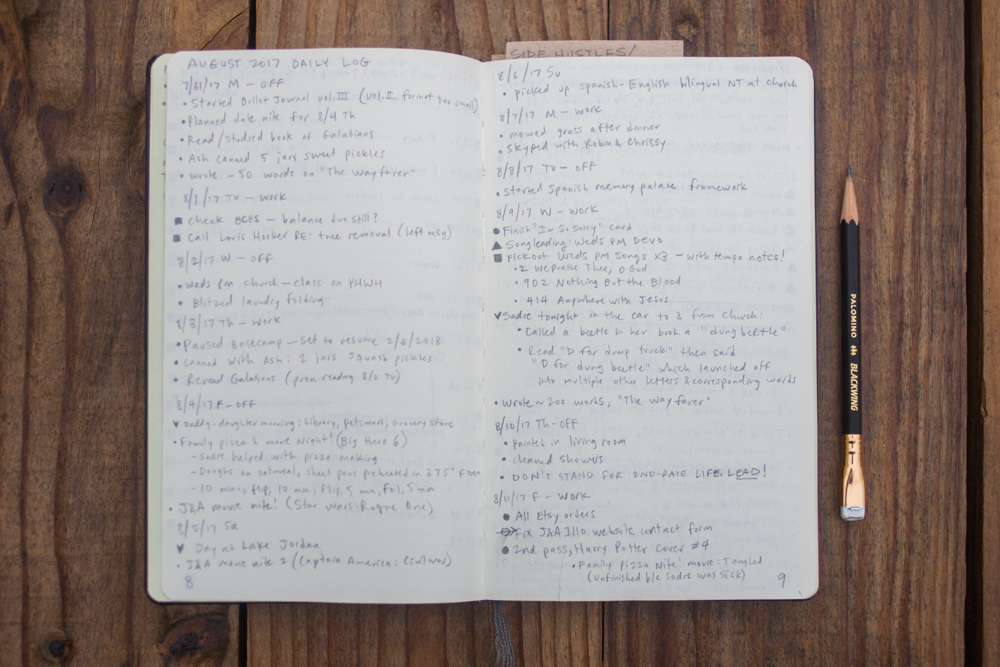 AUGUST 2017 DAILY LOG
7/31/17 M – OFF
• Started Bullet Journal vol. III (vol. II format too small)
• Planned date nite for 8/4 Th
• Read/studied book of Galatians
• Ash canned 5 jars sweet pickles
• Wrote ~50 words on "The Wayfarer"
8/1/17 Tu – work
■ Check BCBS – balance due still?
■ Call Louis Hooker RE: tree removal (left msg)
8/2/17 W – OFF
• Weds pm church – class on YHWH
• Blitzed laundry folding
8/3/17 Th – work
• Paused Basecamp – Set to resume 2/2/2018
• Canned with Ash: 2 jars squash pickles
• Reread Galatians (prev. reading 8/1 Tu)
8/4/17 F – OFF
♥ Daddy-daughter morning: Library, petsmart, grocery store
• Family pizza & movie Night! (Big Hero 6)
– Sadie helped with pizza making
– Doughs on oatmeal, sheet pans preheated in 375° F oven
– 10 min, flip, 10 min, flip, 5 min, foil, 5 min
• J&A movie nite! (Star Wars: Rogue One)
8/5/17 Sa
♥ Day at Lake Jordan
• J&A movie nite 2 (Captain America: Civil War)
8
SIDE HUSTLES/
8/6/17 Su
• picked up spanish-English bilingual NT at church
8/7/17 M – work
• mowed grass after dinner
• Skyped with Robin & Chrissy
8/8/17 Tu – OFF
• Started Spanish memory palace: framework
8/9/17 W – work
● Finish "I'm So Sorry" card
▲ Songleading: Weds PM Devo
■ Pick out Weds PM Songs x3 – with tempo notes!
• 2 We Praise Thee, O God
• 902 Nothing But the Blood
• 414 Anywhere with Jesus
♥ Sadie tonight in the car to & from church:
• Called a beetle in her book a "dung beetle"
• Read "D for dump truck" then said
"D for dung beetle" which launched off
into multiple other letters & corresponding words
• Wrote ~200 words, "The Wayfarer"
8/10/17 Th – OFF
• painted in living room
• cleaned showers
• DON'T STAND FOR 2ND-RATE LIFE. LEAD!
8/11/17 F – Work
● All Etsy orders
Fix J&A Illo website contact form
● 2nd pass, Harry Potter Cover #4
• Family Pizza Nite! movie: Tangled
(Unfinished b/c Sadie was sick)
9
PALOMINO BLACKWING